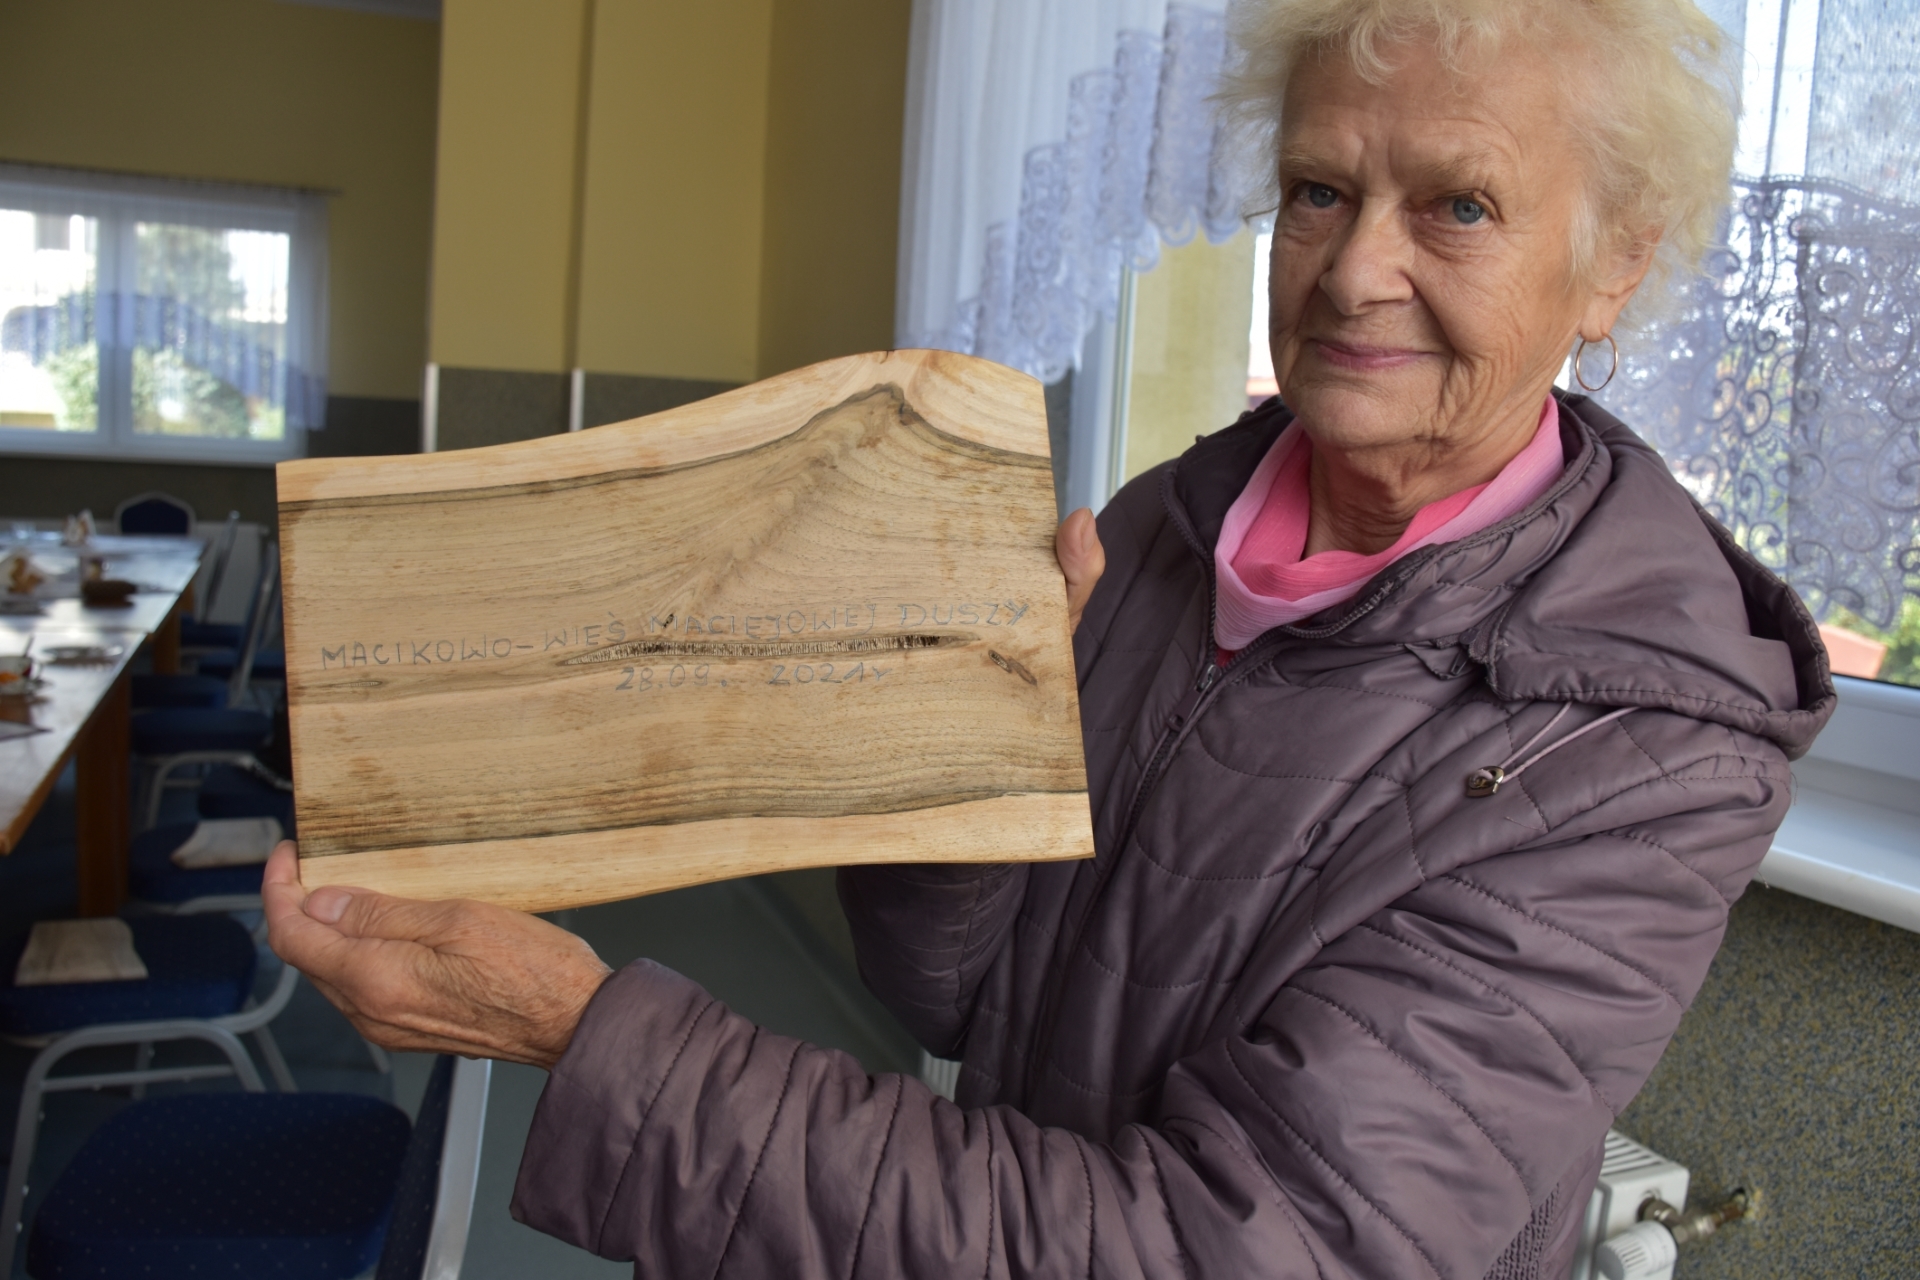 MACIKOWO-WIEŚ MACIEJOWEJ DUSZY
28.09. 2021r